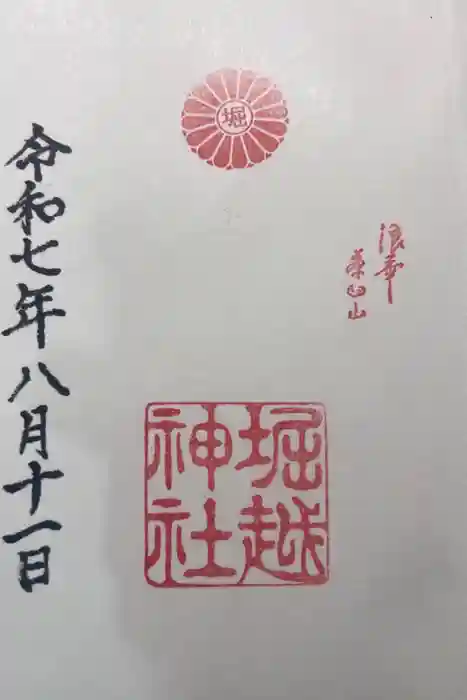 堀
浪華
茶臼山
堀越
神社
令和七年八月十一日